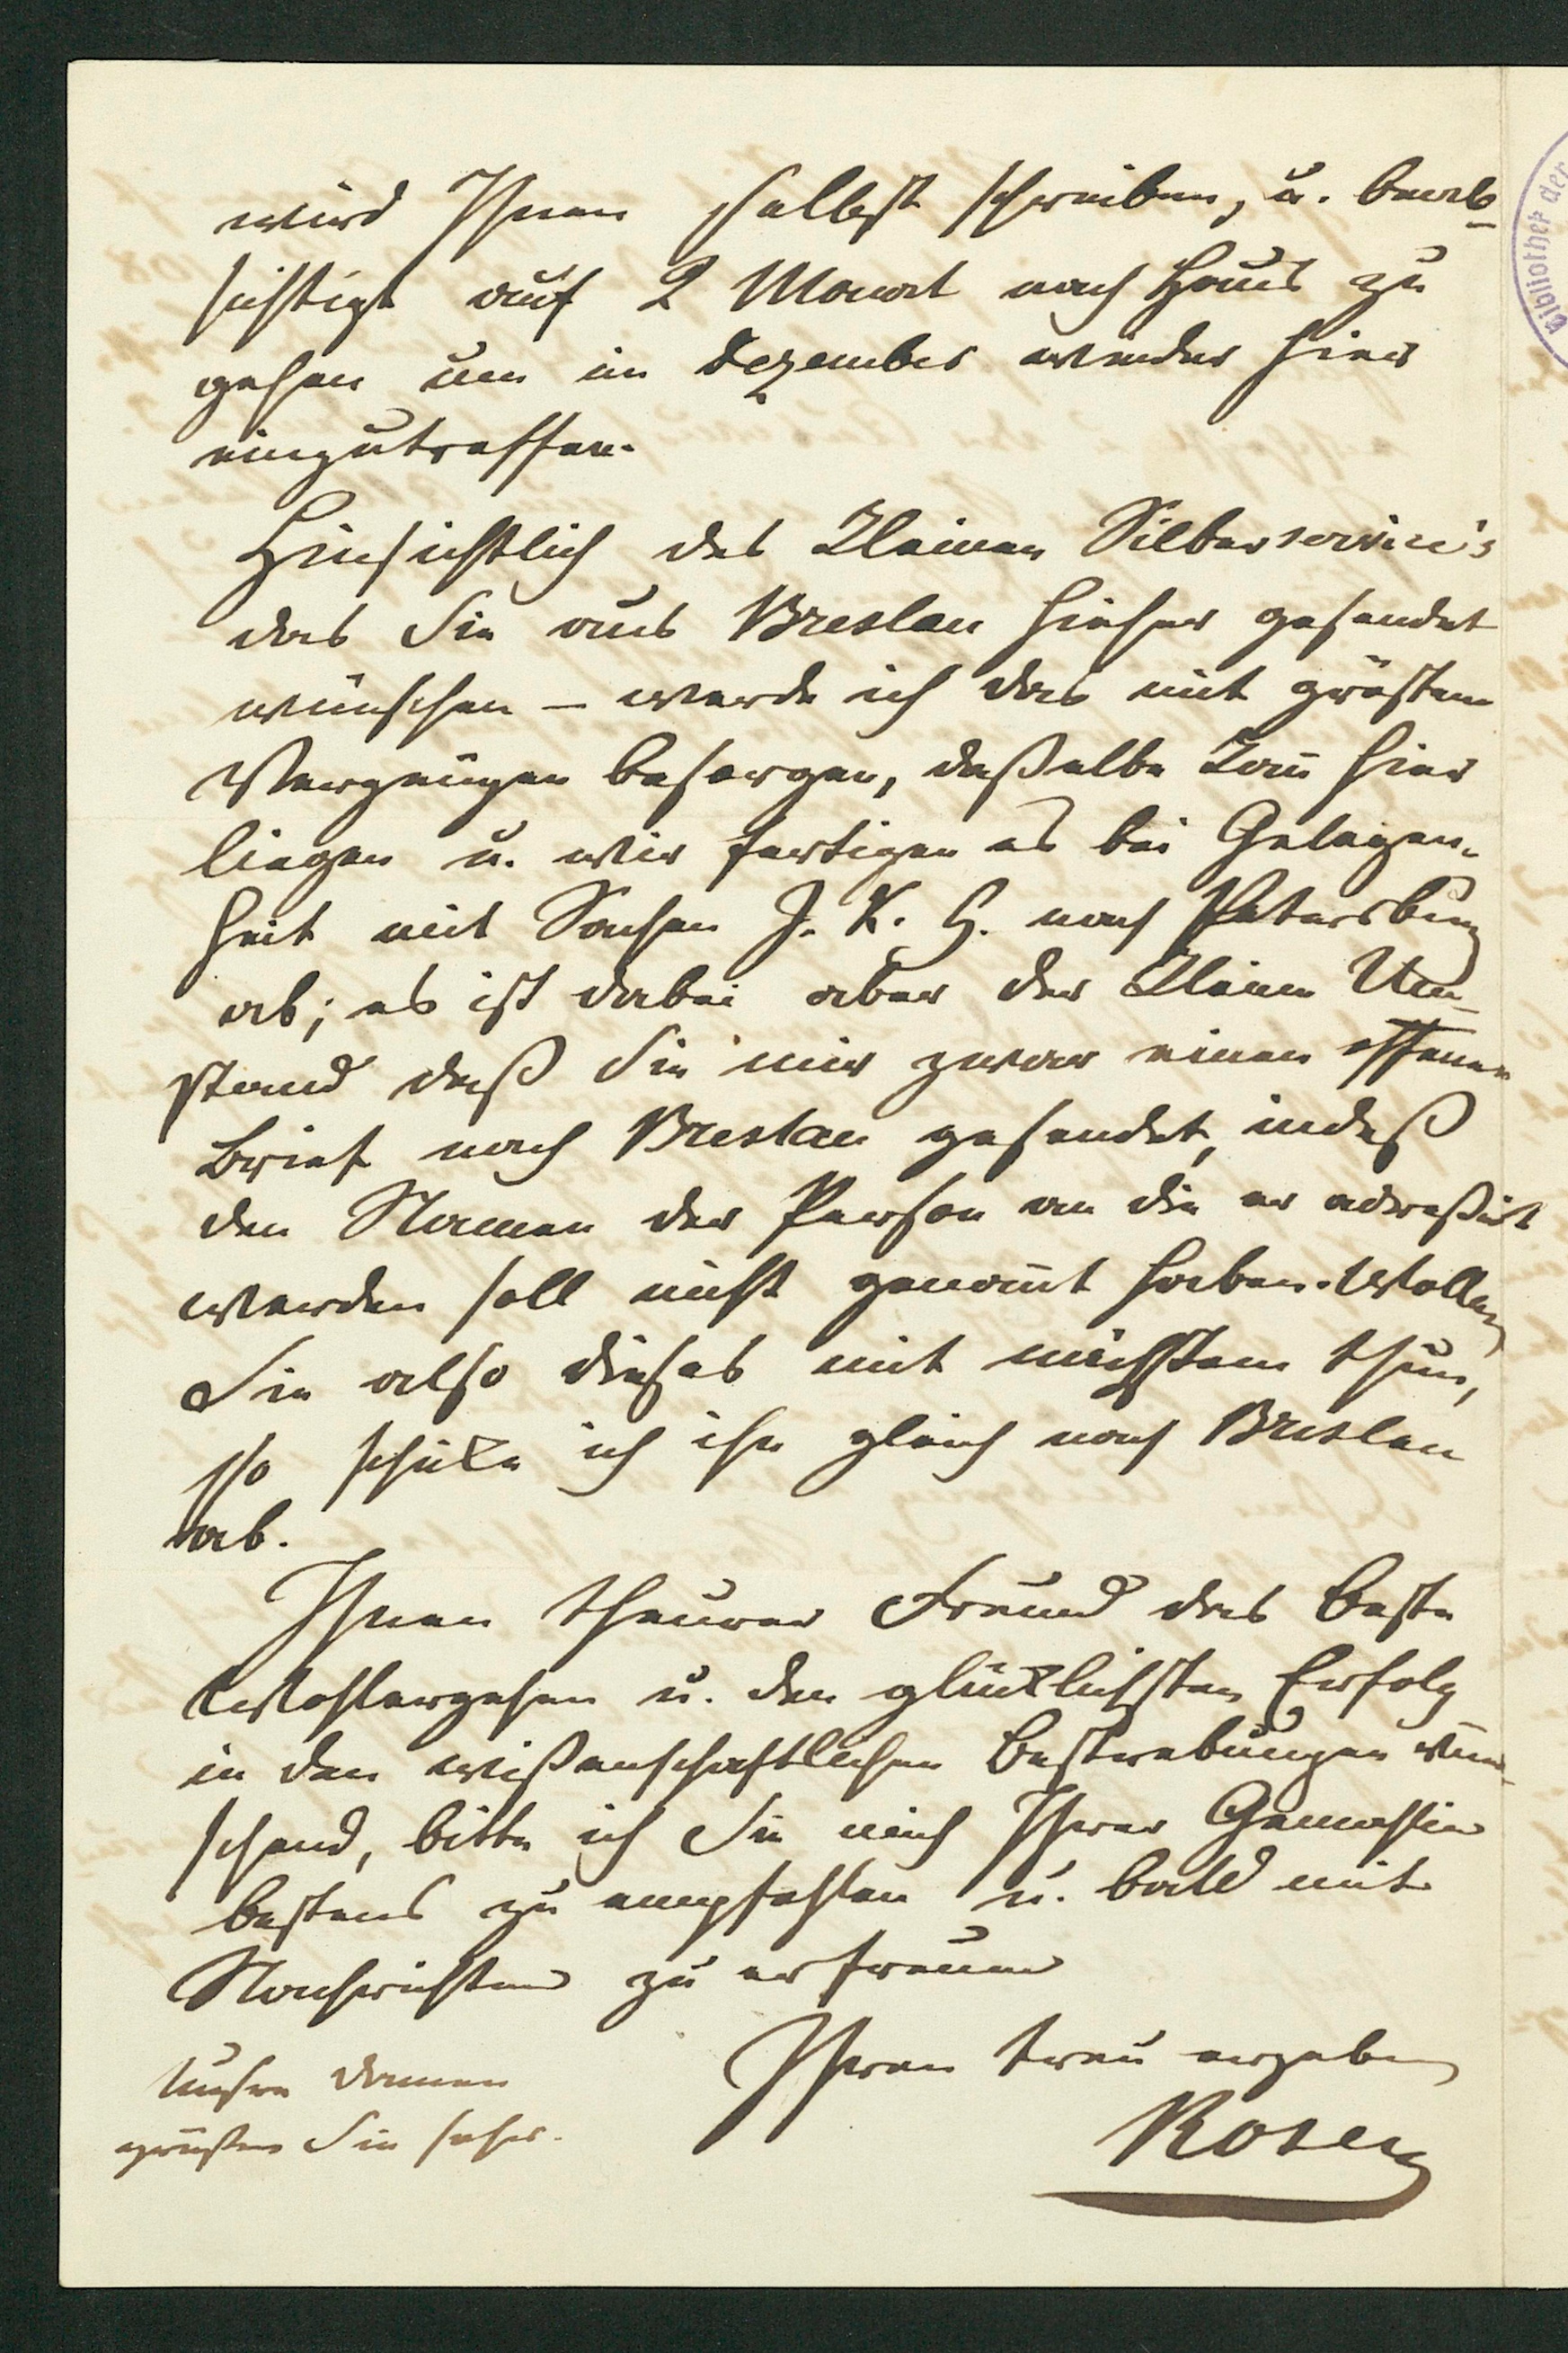 wird Ihnen selbst schreiben, u. beab-
sichtigt auf 2 Monat nach Haus zu
gehen um im Dezember wieder hier
einzutreffen.
Hinsichtlich des kleinen Silberservice's
das Sie aus Breslau hieher gesendet
wünschen – werde ich das mit größtem
Vergnügen besorgen, daßelbe kan̄ hier
liegen u. wir fertigen es bei Gelegen-
heit mit Sachen J. K. H. nach Petersburg
ab; es ist dabei aber der kleine Um-
stand daß Sie mir zwar einen offenen
Brief nach Breslau gesendet, indeß
den Namen der Person an die er adreßirt
werden soll nicht genan̄t haben. Wollen
Sie also dieses mit nächstem thun,
so schicke ich ihn gleich nach Breslau
ab.
Ihnen theurer Freund das beste
Wohlergehen u. den glücklichsten Erfolg
in den wißenschaftlichen Bestrebungen wün-
schend, bitte ich Sie mich Ihrer Gemahlin
bestens zu empfehlen u. bald mit
Nachrichten zu erfreuen
Ihren treu ergeben
Rosen
Unsere Damen
grüßen Sie sehr.
Bibliothek der